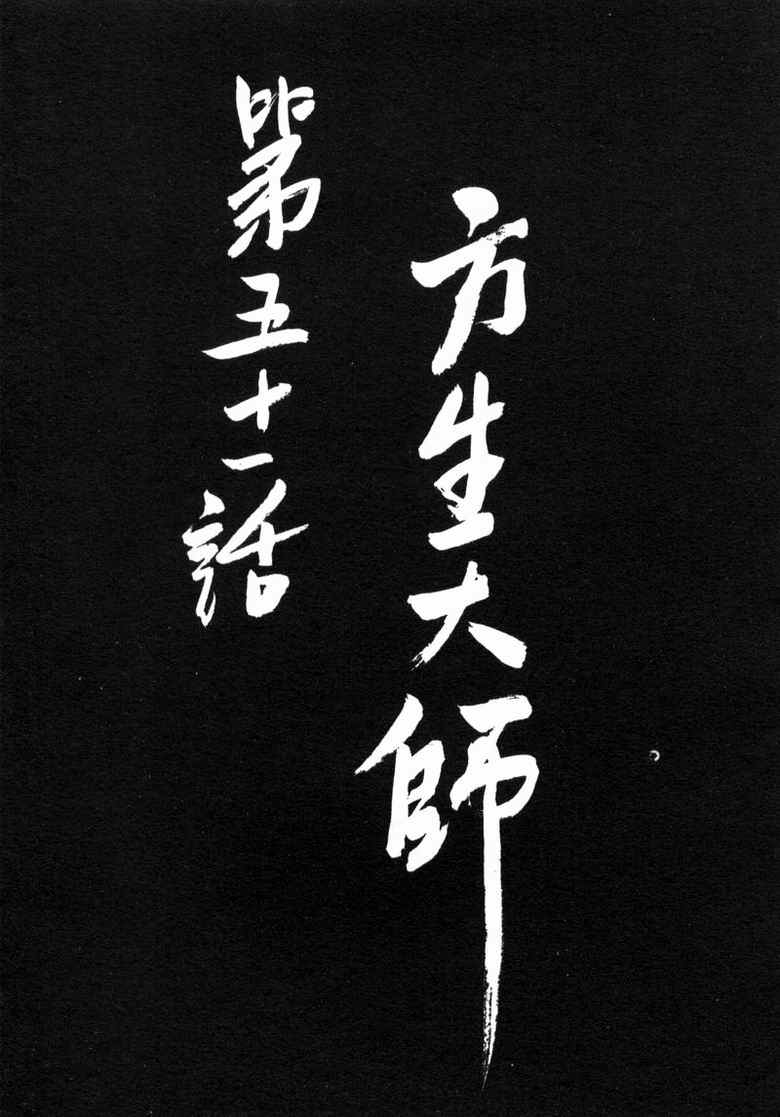 方生大師
第五十一話